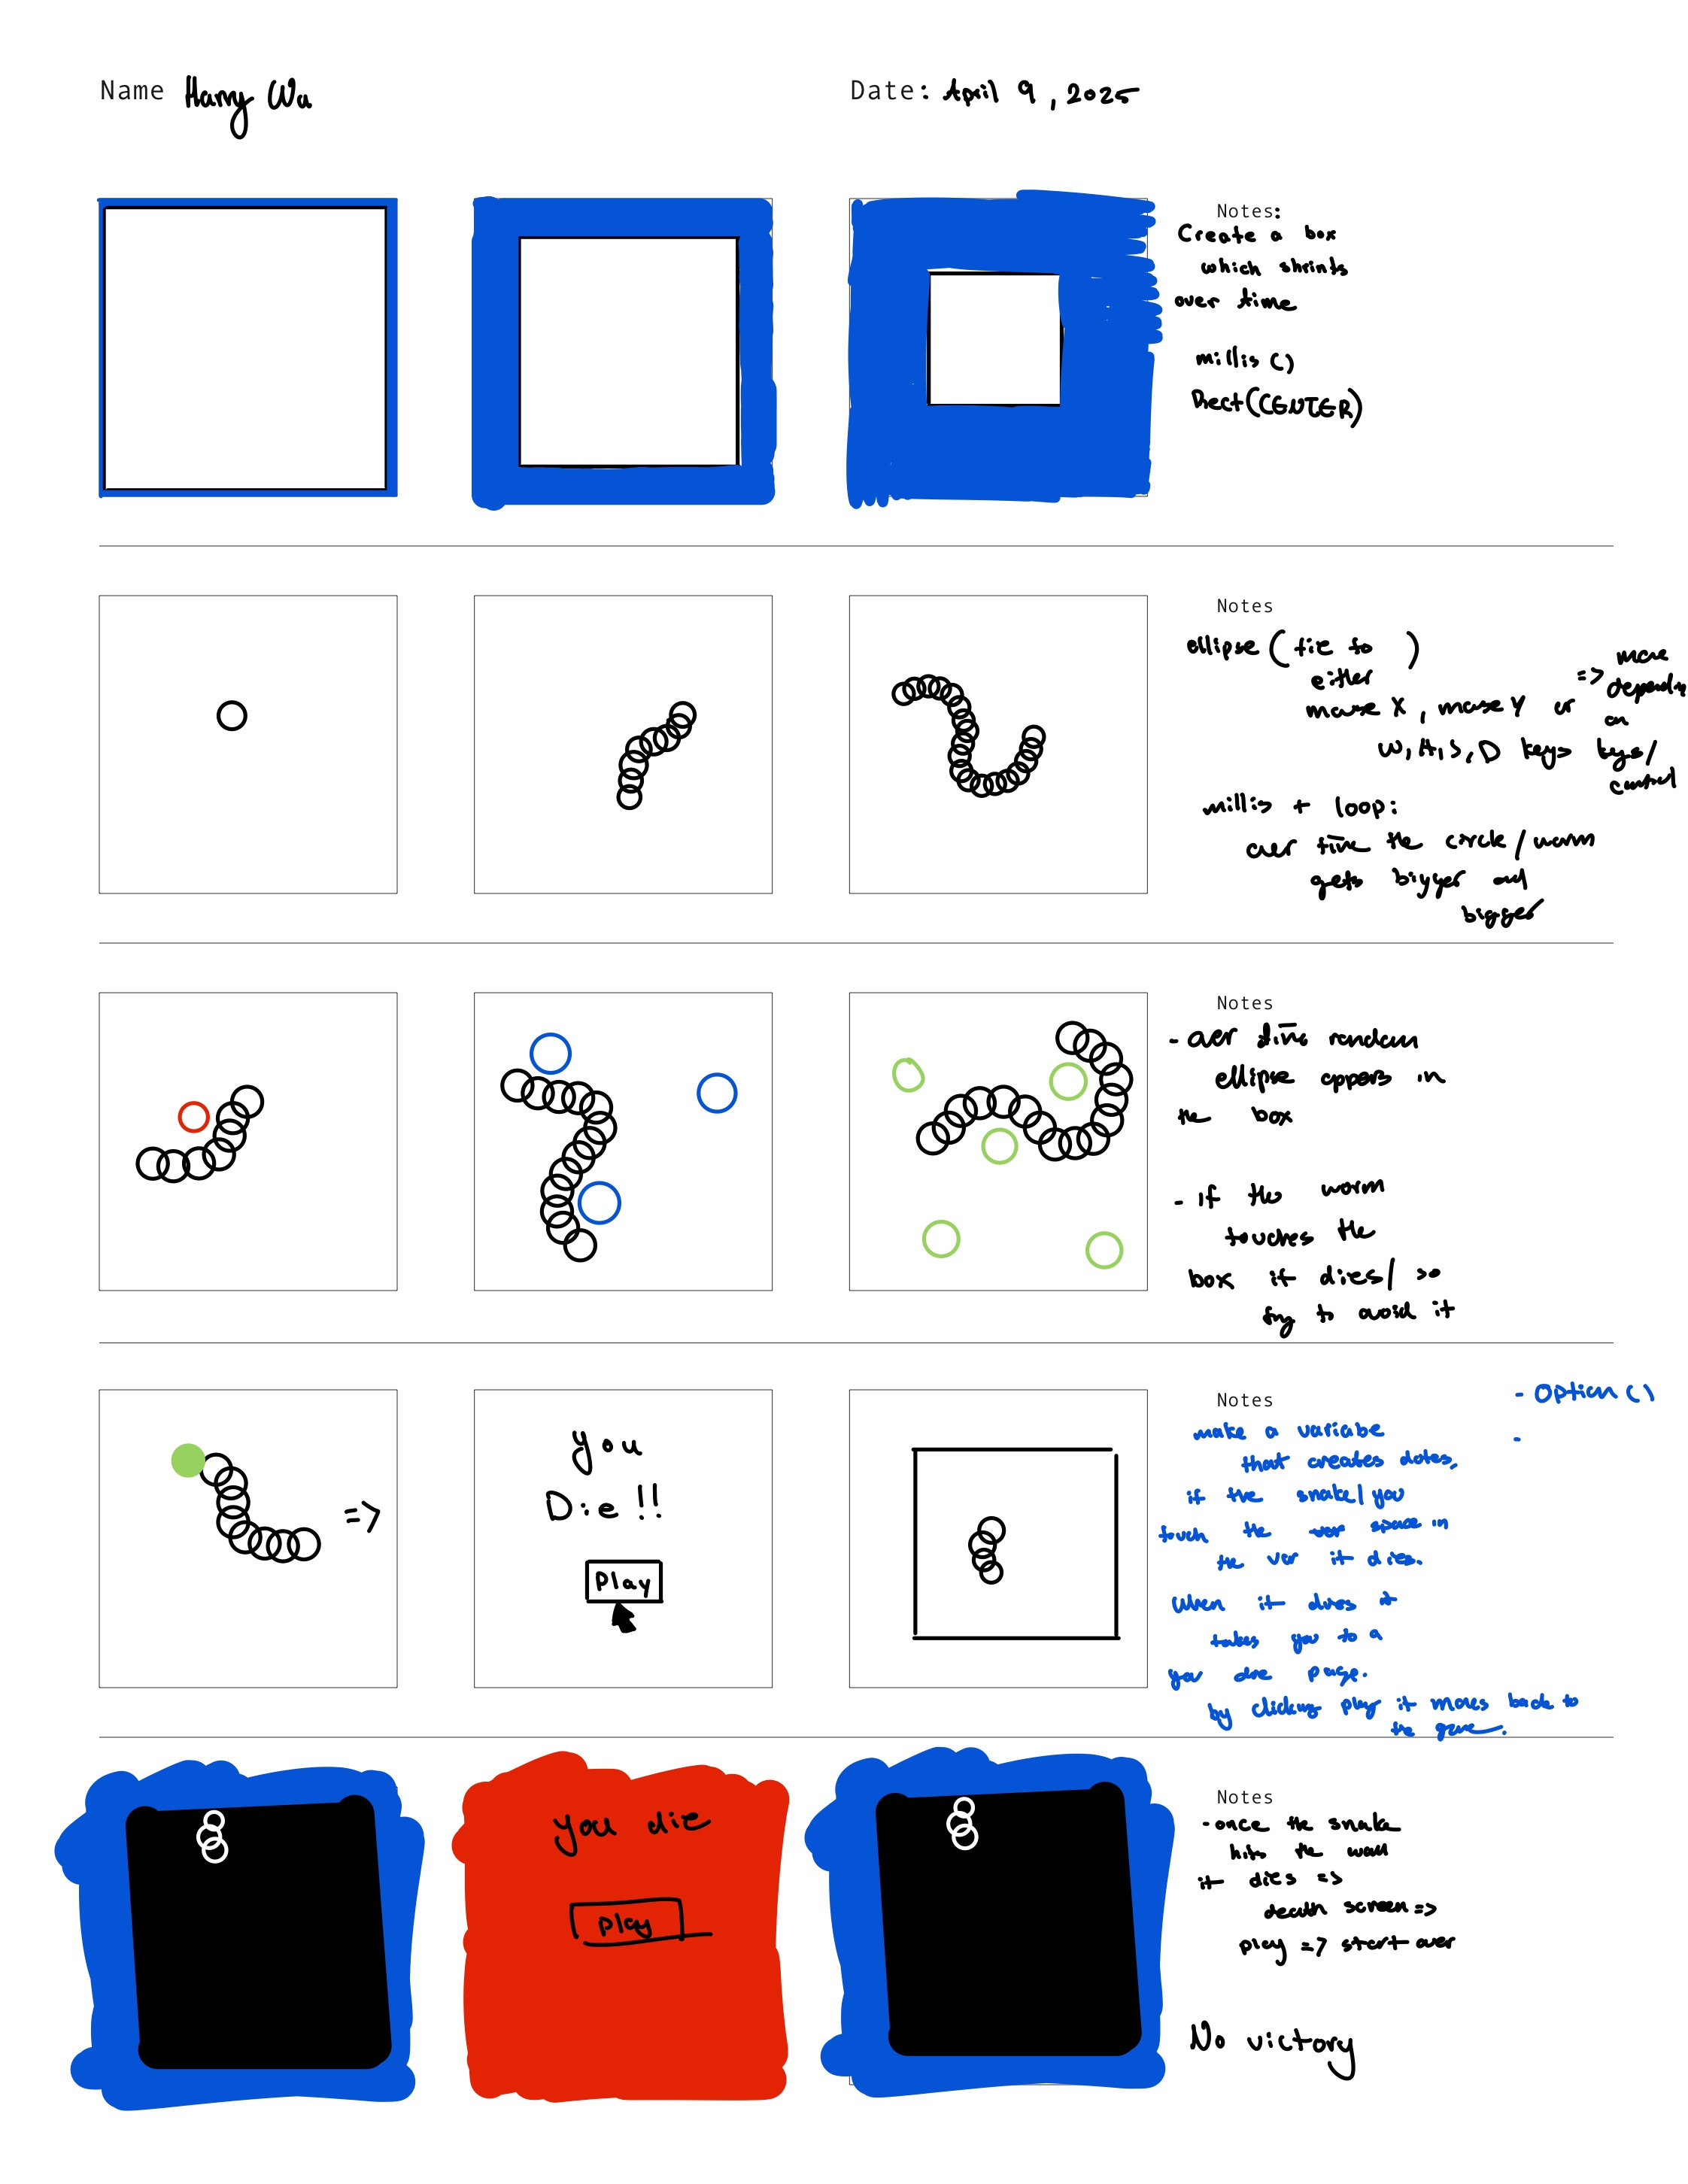 Name Harry Wu
Date: April 9, 2025
Notes:
Create a box
which shrinks
over time
millis ()
Rect(CENTER)
Notes
ellipse ( tie to )
either
mouse X, mouse Y or
W, A, S, D keys
=> move
depending
on
keys/
control
millis + loop:
over time the circle / worm
gets bigger and
bigger
Notes
- over time random
ellipse appers in
the box
- if the worm
touches the
box it dies/ so
try to avoid it
=>
you
Die!!
Play
Notes
- Option ()
-
make a variabe
that creates dotes,
if the snake/you
touch the space in
the var it dies.
When it dies it
takes you to a
you die page.
by clicking play it moves back to
the game.
you die
play
Notes
- once the snake
hits the wall
it dies =>
death screen =>
play => start over
No victory